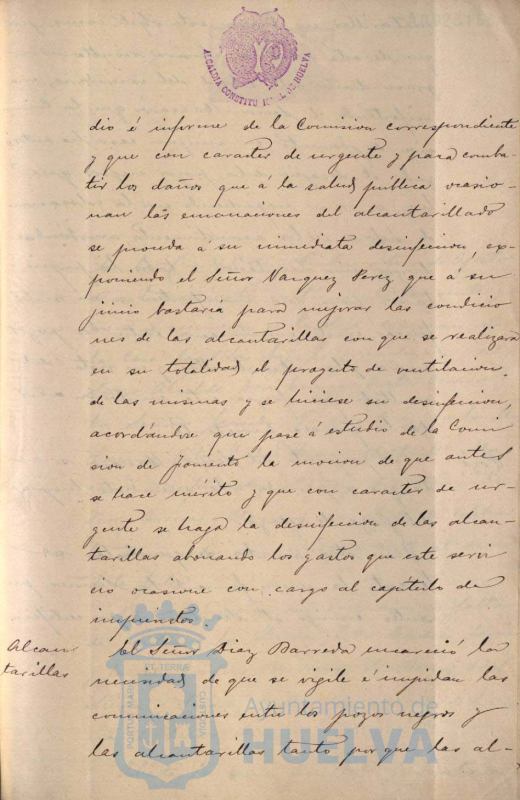 ALCALDIA CONSTITU NAL DE HUELVA
dio é informe de la Comision correspondiente
y que con caracter de urgente y para comba-
tir los daños que á la salud pública ocasio-
nan las emanaciones del alcantarillado
se proceda á su inmediata desinfeccion, ex-
poniendo el Señor Vazquez Perez que á su
juicio bastaria para mejorar las condicio
nes de las alcantarillas con que se realizara
en su totalidad el proyecto de ventilacion
de las mismas y se hiciese su desinfeccion,
acordándose que pase á estudio de la Comi
sion de Fomento la mocion de que antes
se hace mérito y que con caracter de ur-
gente se haga la desinfeccion de las alcan-
tarillas abonando los gastos que este servi
cio ocasione con cargo al capitulo de
imprevistos.
Alcan
tarillas
El Señor Diaz Barreda encareció la
necesidad de que se vigile é impidan las
comunicaciones entre los pozos negros y
las alcantarillas tanto por que las al-
PORTUS MARIS ET TERRAE CUSTODIA
Ayuntamiento de
HUELVA